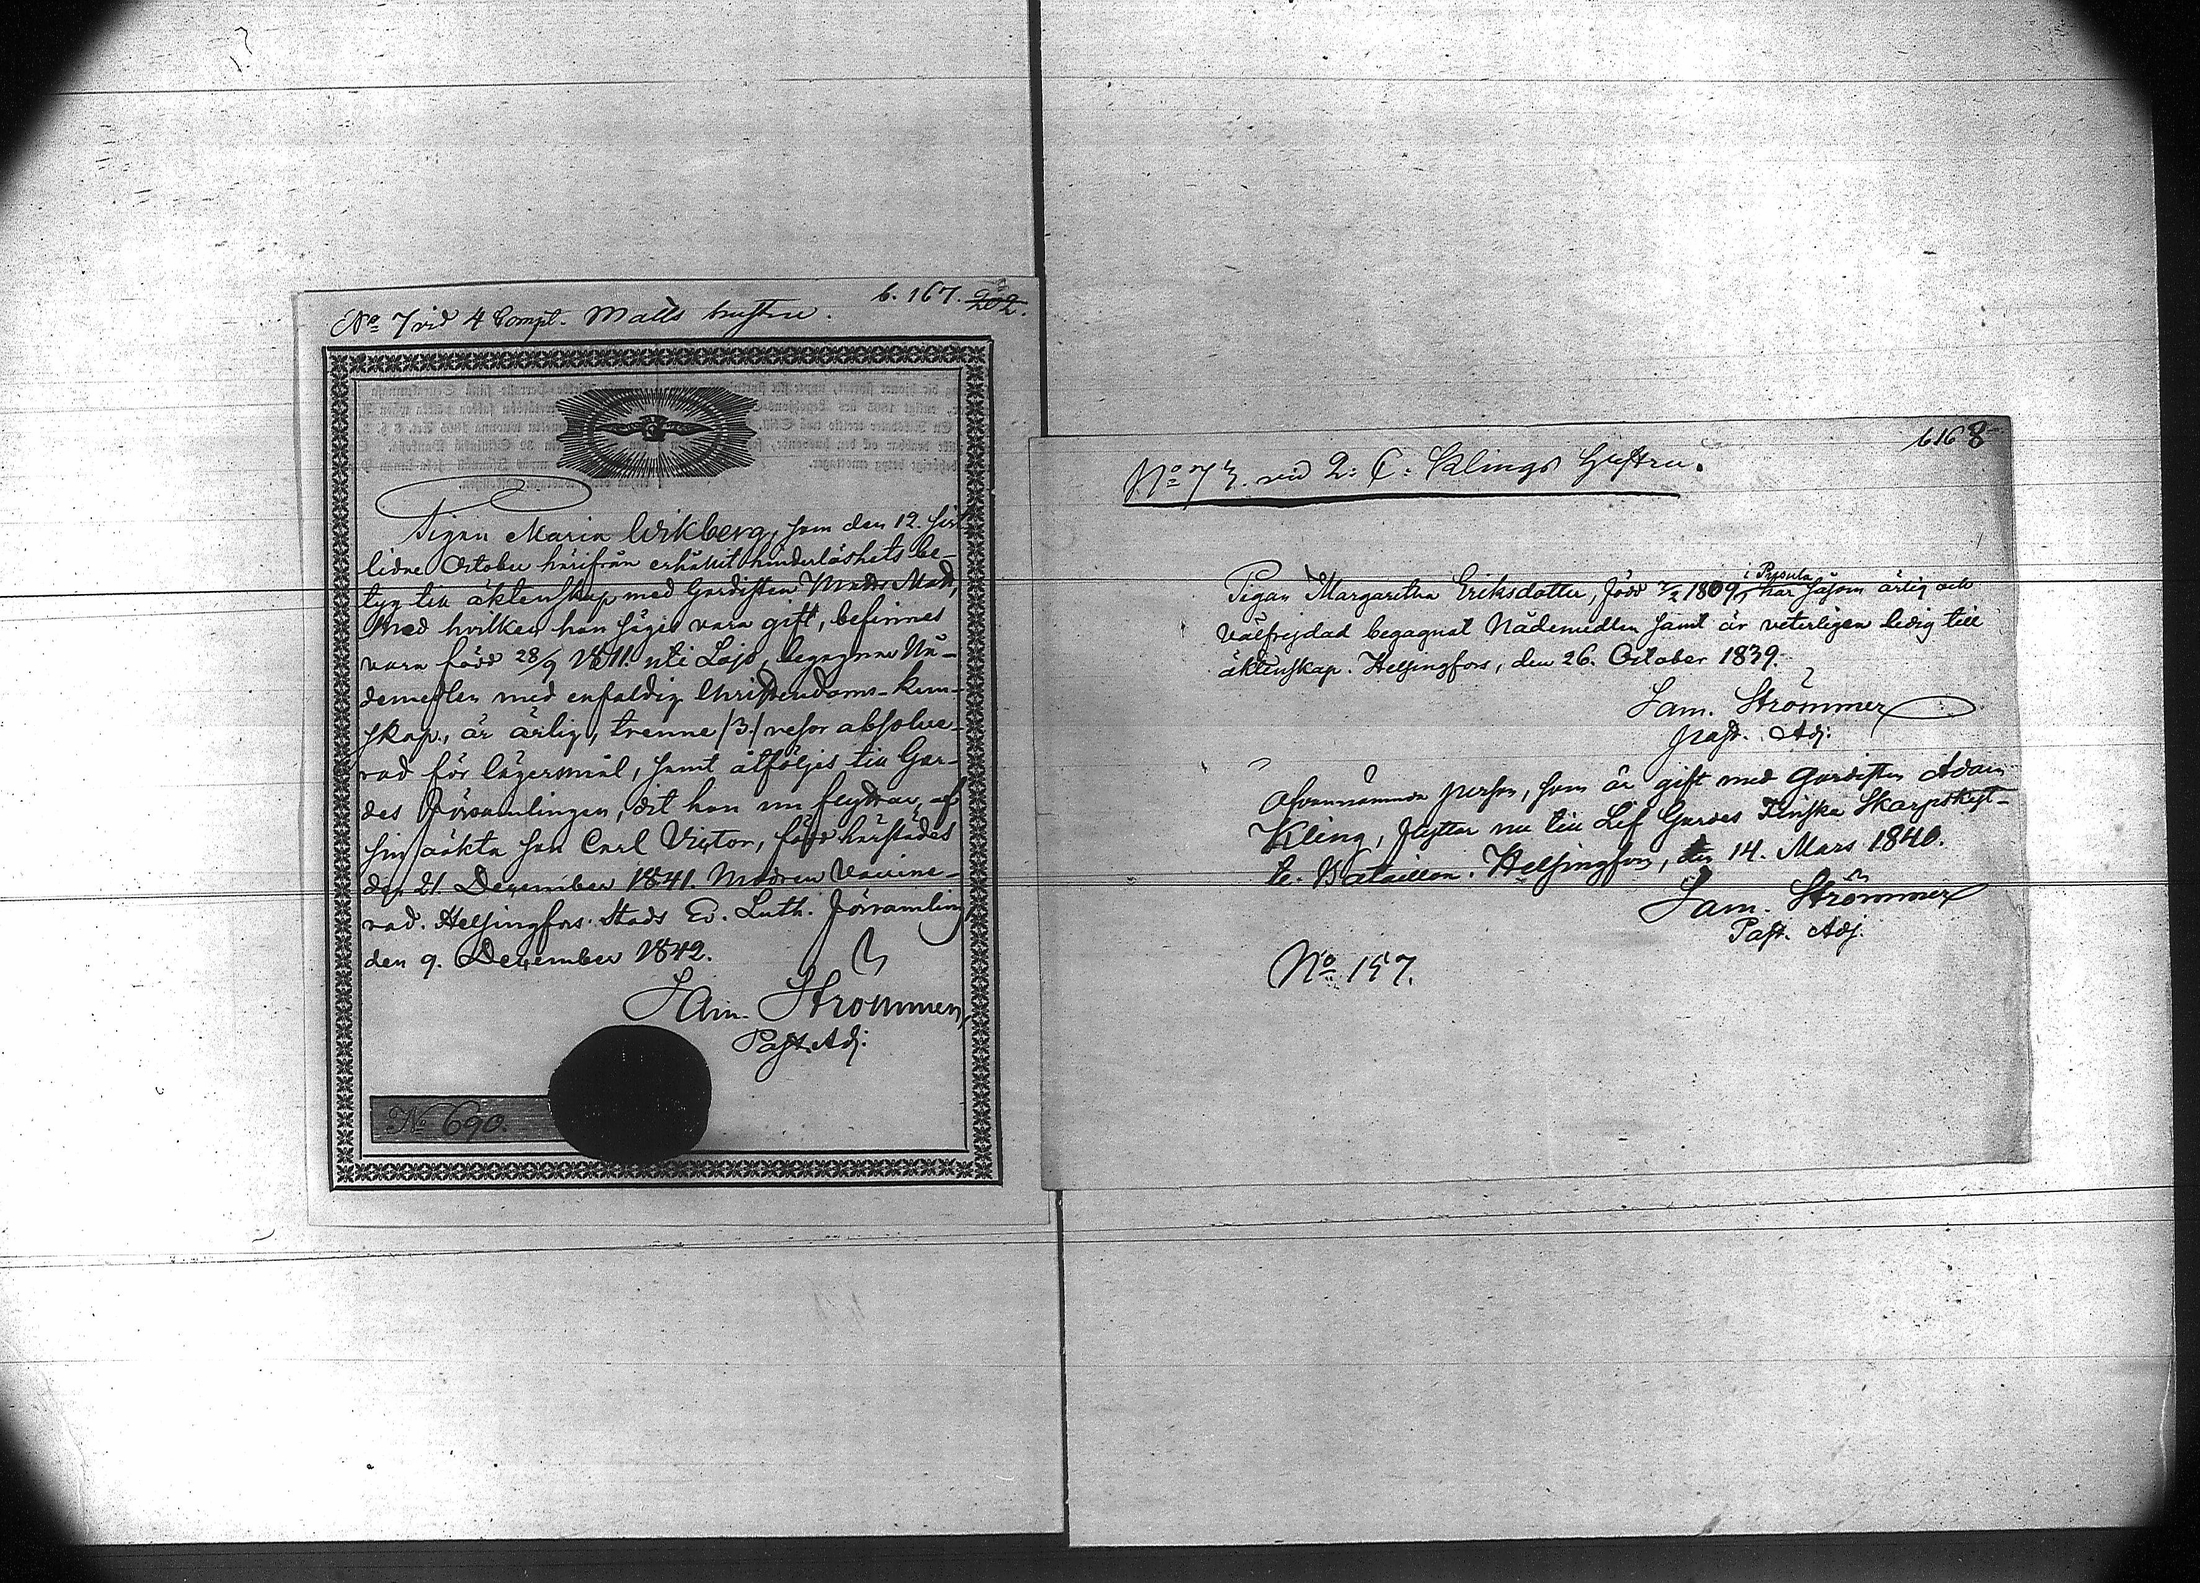 No 7 vid 4 Compt. Matts hustru.
b. 167. 202.
Pigan Maria Wikberg, som den 12. sist-
lidne October härifrån erhållit hinderlöshets be-
tyg till äktenskap med Gardisten Matts Matts,
med hvilken hon säges vara gift, befinnes
vara född 28/9 1811 uti Lojo, begagnar Nå-
demedlen med enfaldig Christendoms-kun-
skap, är ärlig, trenne /3/ resor absolve-
rad för lägersmål, samt åtföljes till Gar-
des Församlingen, dit hon nu flyttar, af
sin oäkta son Carl Victor, född härstädes
den 21 December 1841. Modren vaccine-
rad. Helsingfors Stads Ev. Luth. Församling
den 9. December 1842.
Sam. Strömmer,
Past. Adj.
No 690.
b 168
No 73. vid 2: C: Klings Hustru.
i Pusula
Pigan Margaretha Eriksdotter, född 7/2 1809, har såsom ärlig och
välfrejdad begagnat Nådemedlen samt är veterligen ledig till
äktenskap. Helsingfors, den 26. October 1839.
Sam. Strömmer
Past. Adj.
Ofvannämnde person, som är gift med Gardisten Adam
Kling, flyttar nu till Lif Gardes Finska Skarpskyt-
te-Bataillon. Helsingfors, den 14. Mars 1840.
Sam. Strömmer
Past. Adj.
No 157.